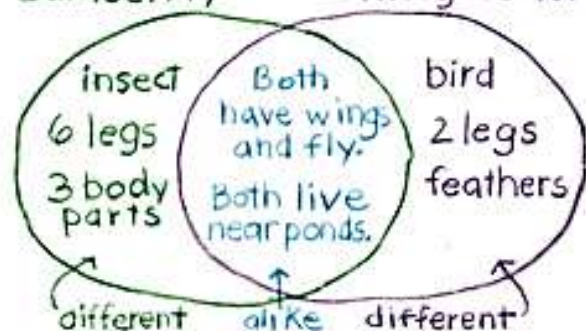 insect
6 legs
3 body
parts
Both
have wings
and fly.
Both live
near ponds.
bird
2 legs
feathers
different
alike
different